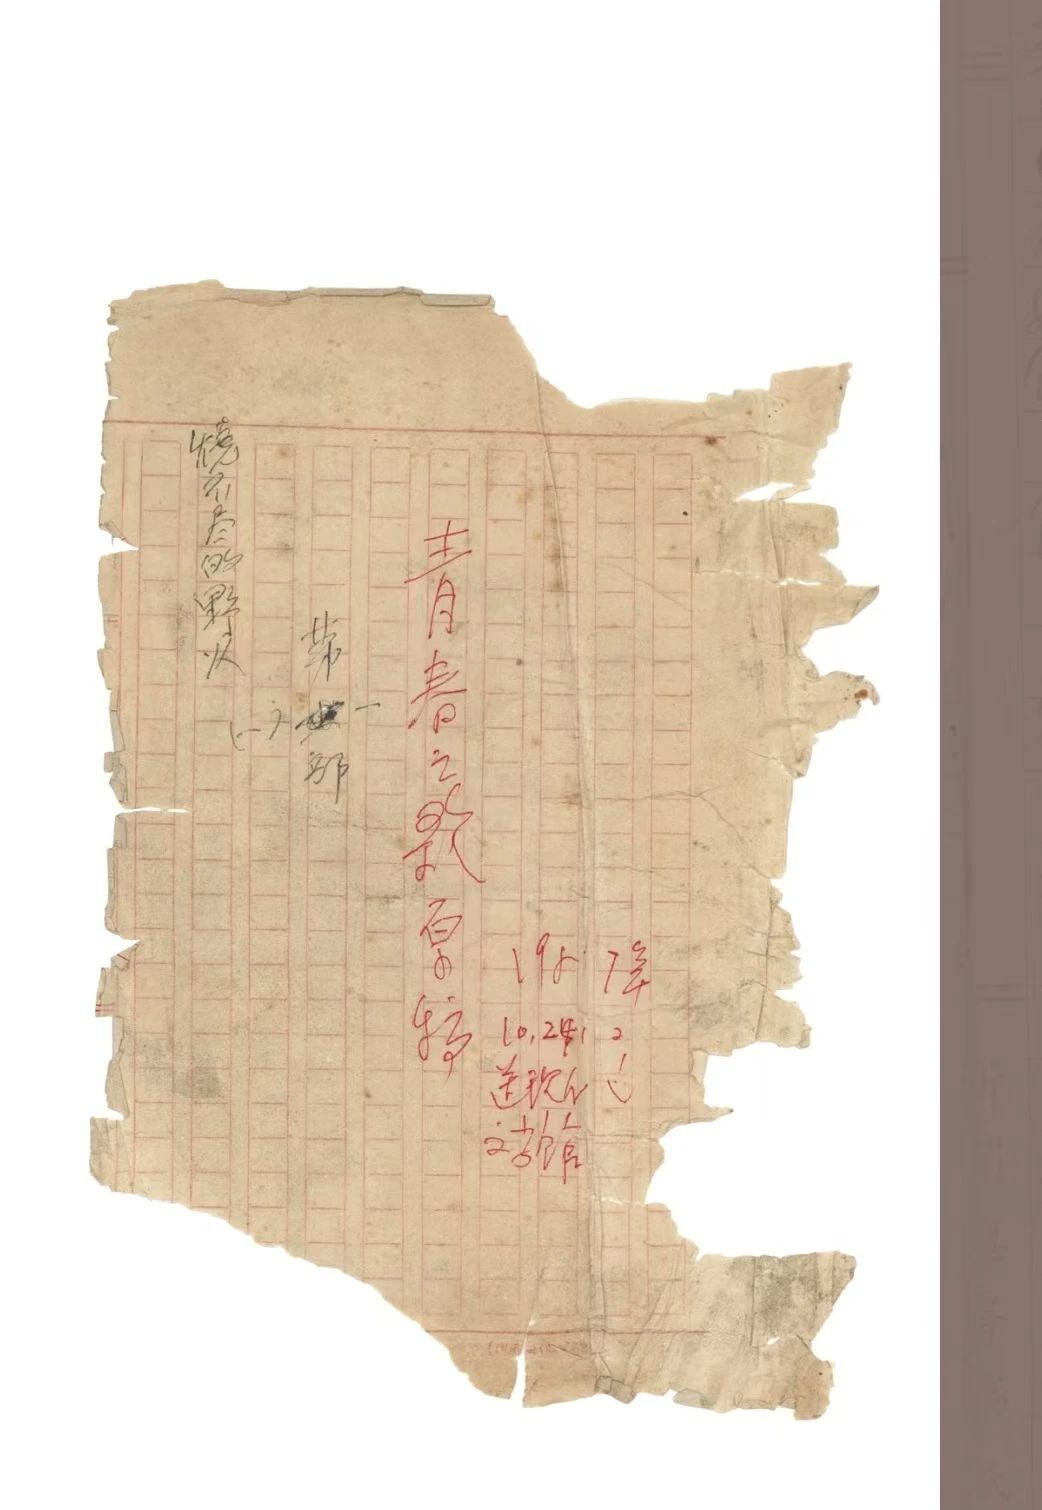 青春之歌原稿
第一部
(一)
燒不尽的野火
195 7年
10.24
送现代
文学馆